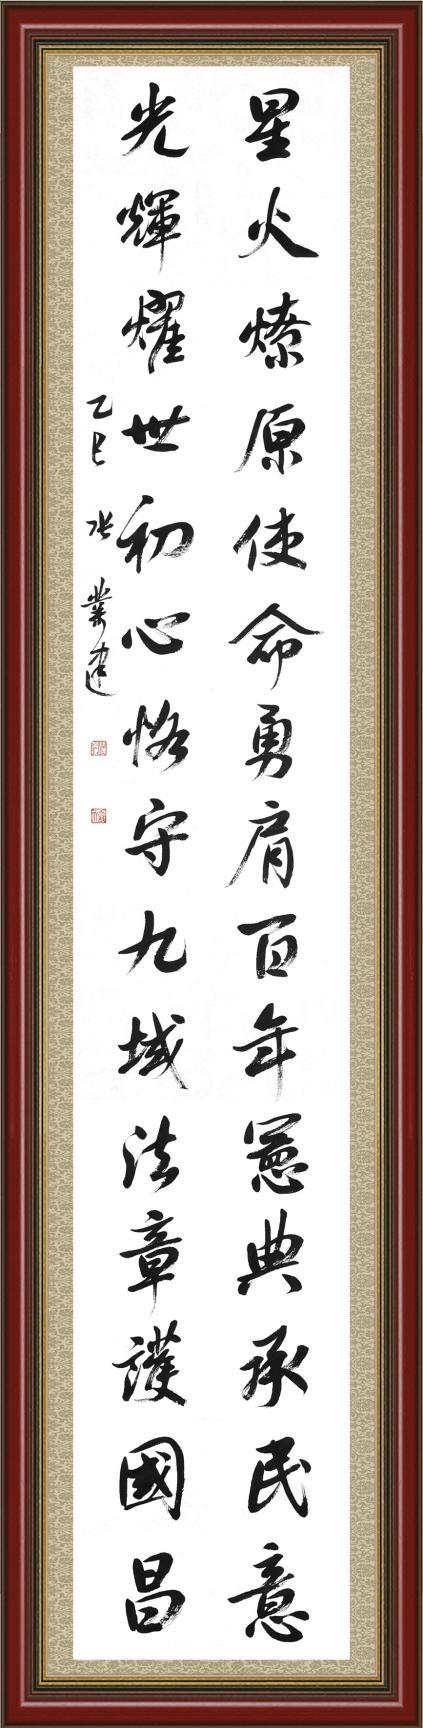 星火燎原使命勇肩百年憲典承民意
光輝耀世初心恪守九域法章護國昌
乙巳 張業建